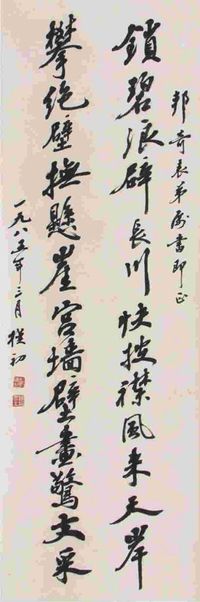 邦奇表弟属书即正
锁碧浪辟长川快披襟风来天岸
攀绝壁抚悬崖宫墙壁画惊文采
一九八五年三月 朴初